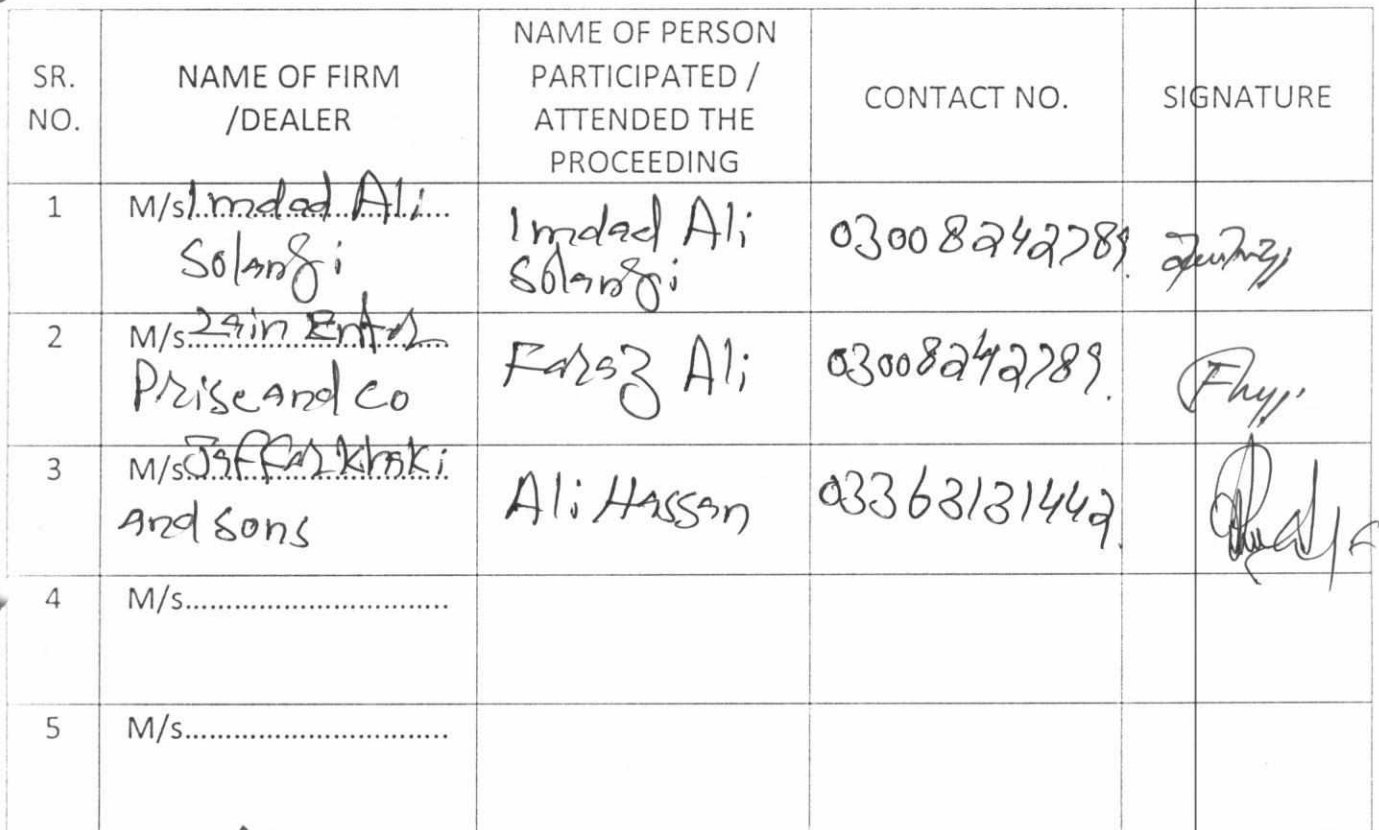 SR. NO.
NAME OF FIRM /DEALER
NAME OF PERSON PARTICIPATED / ATTENDED THE PROCEEDING
CONTACT NO.
SIGNATURE
1
M/s Imdad Ali
Solangi
Imdad Ali
Solangi
03008242789.
2
M/s Zain Enter
Prise and co
Faraz Ali
03008242789.
3
M/s Jaffar khaki
And sons
Ali Hassan
03363131442.
4
M/s..............................
5
M/s..............................